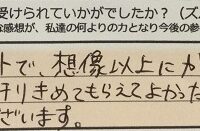 受けられていかがでしたか？（ズ
な感想が、私達の何よりの力となり今後の参
トで、想像以上にか
チリきめてもらえてよかっ
ざいます。